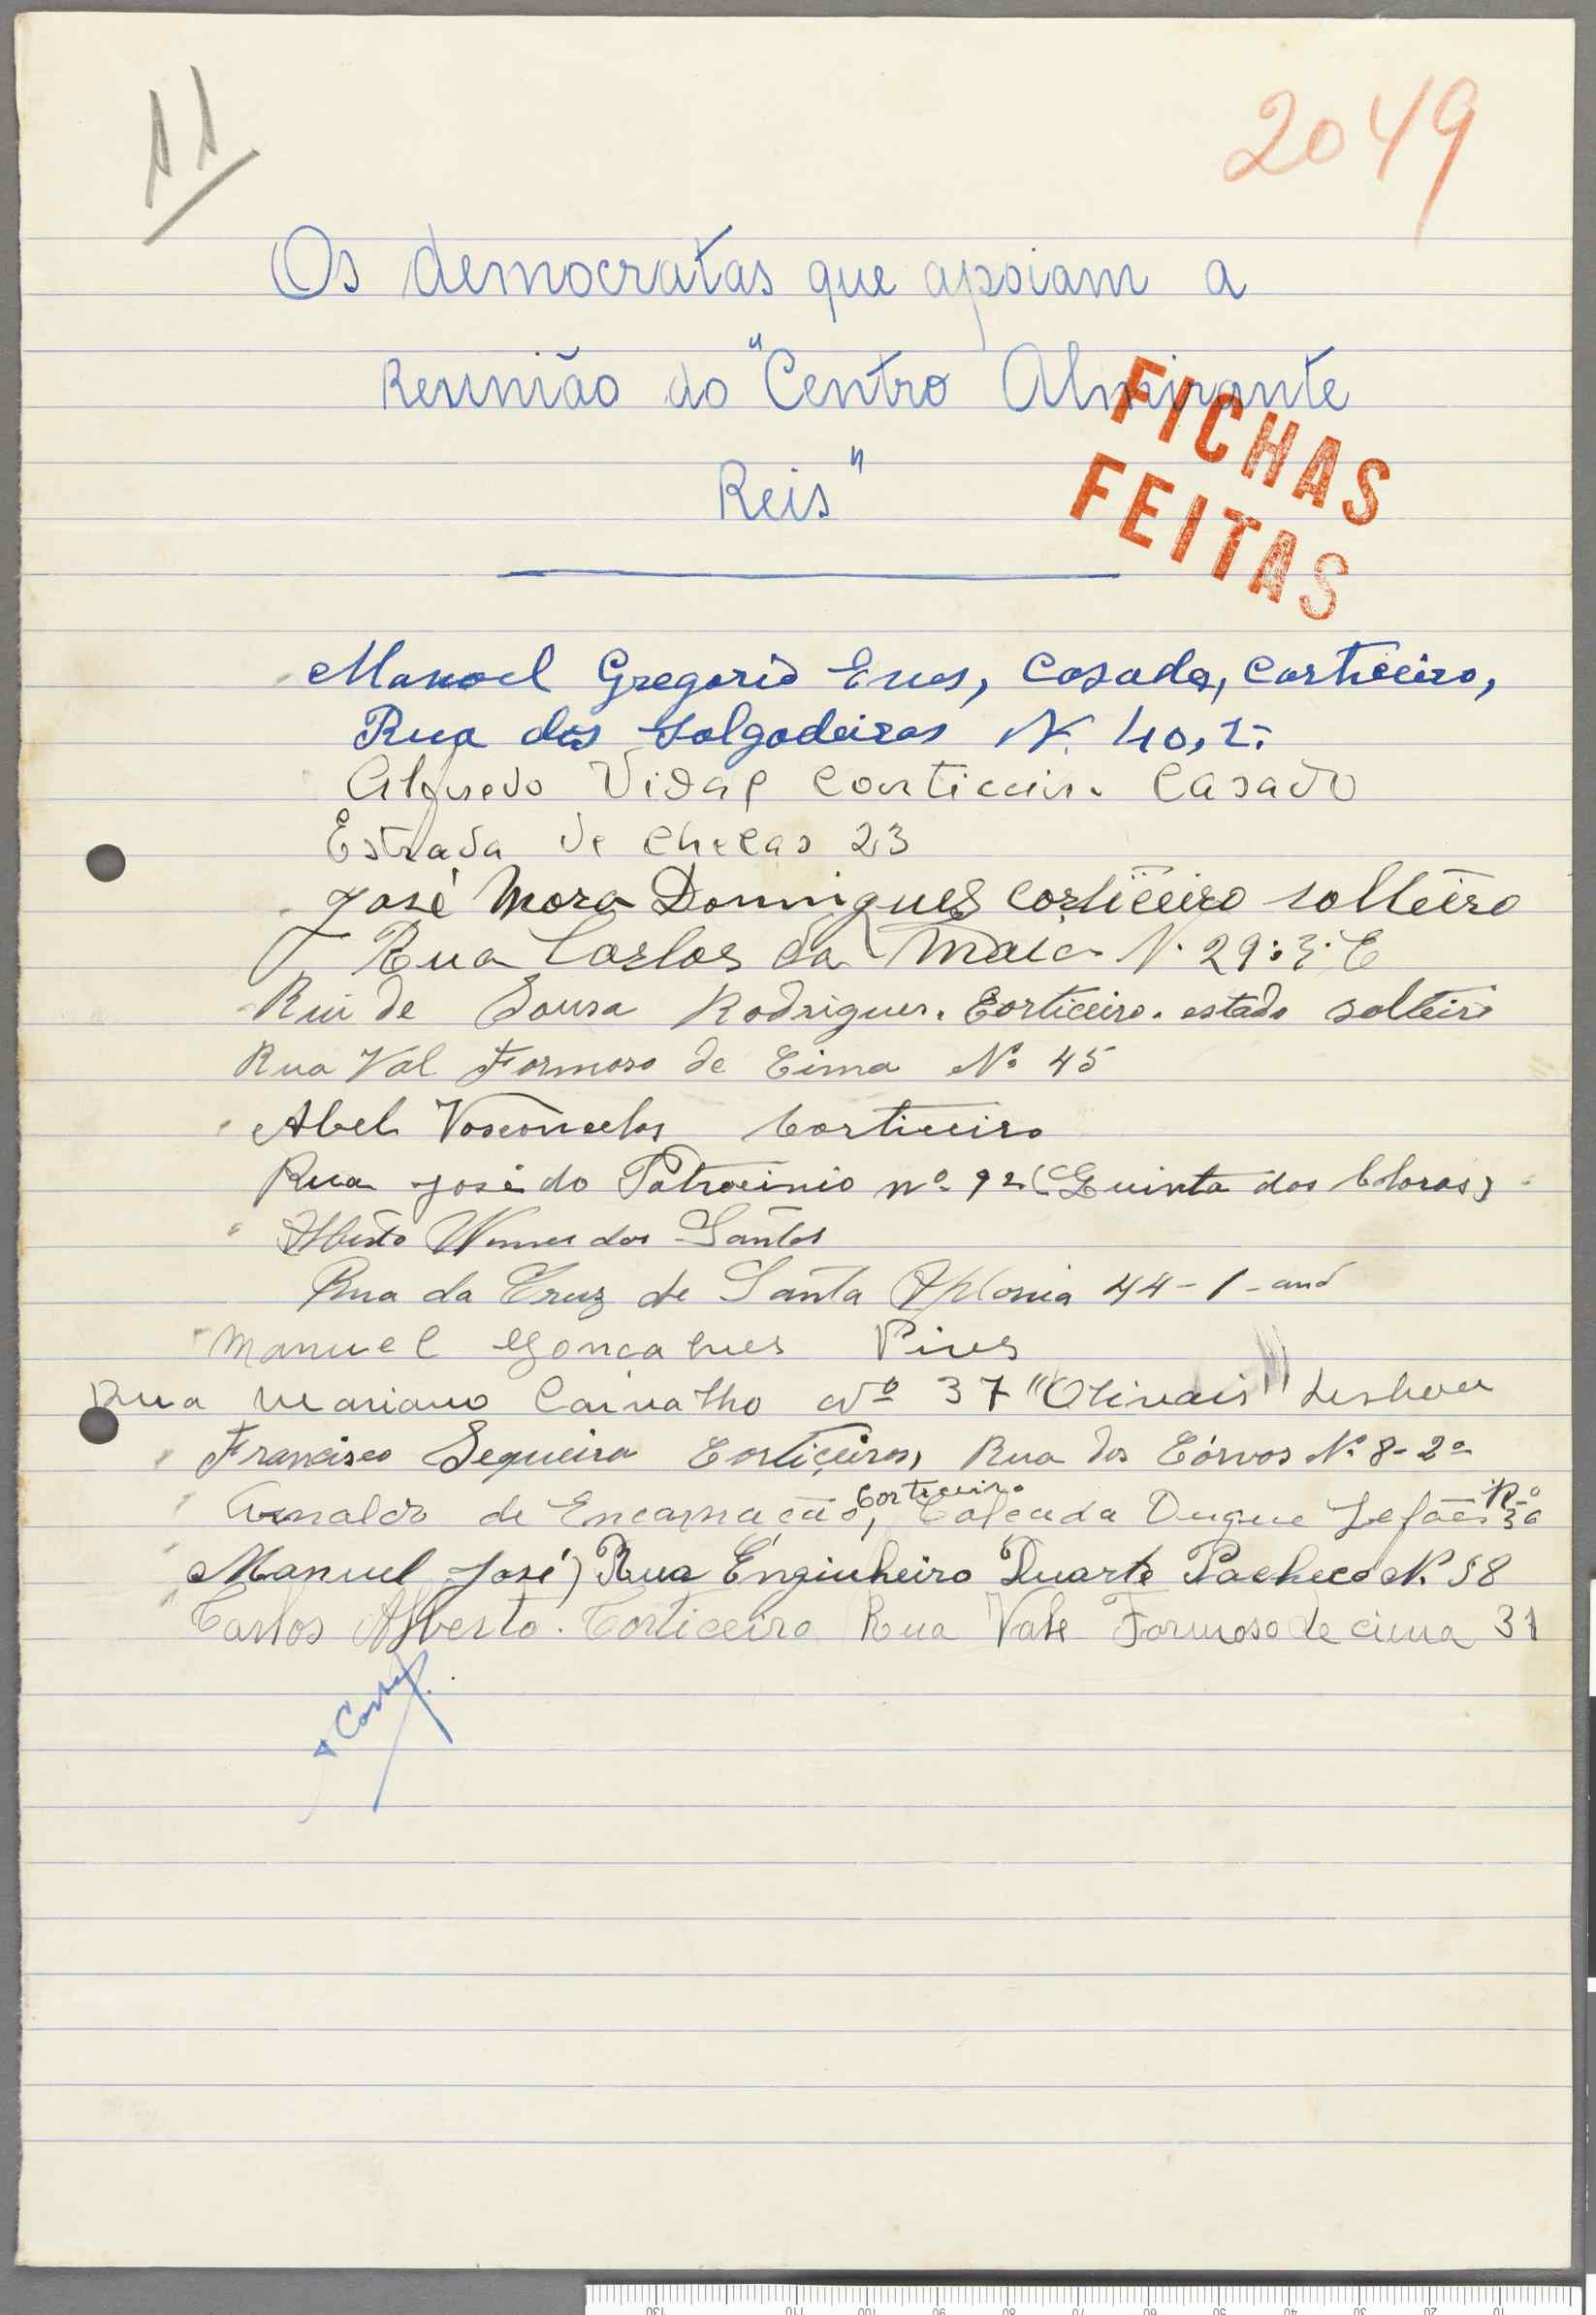 11
2049
Os democratas que apoiam a
Reunião do "Centro Almirante
Reis"
FICHAS
FEITAS
Manoel Gregorio Enes, Casado, Corticeiro,
Rua das Salgadeiras N. 40, 2.
Alfredo Vidal Corticeiro Casado
Estrada de Chelas 23
José Mora Domingues Corticeiro solteiro
Rua Carlos da Maia N. 29: 3. E
Rui de Sousa Rodrigues. Corticeiro. estado solteiro
Rua Val Formoso de Cima Nº 45
Abel Vasconcelos Corticeiro
Rua José do Patrocinio nº 92 (Quinta dos
Alberto dos Santos
Rua da Cruz de Santa Aplonia 44-1-and
Manuel Goncalves Pires
Rua Mariano Carvalho Nº 37 "Olivais" Lisboa
Francisco Sequeira Corticeiro, Rua dos Córvos Nº 8-2º
Arnaldo de Encarnacão, Corticeiro Calcada Duque Lafões
Manuel José) Rua Enginheiro Duarte Pacheco Nº 58
Carlos Alberto. Corticeiro Rua Vale Formoso de cima 31